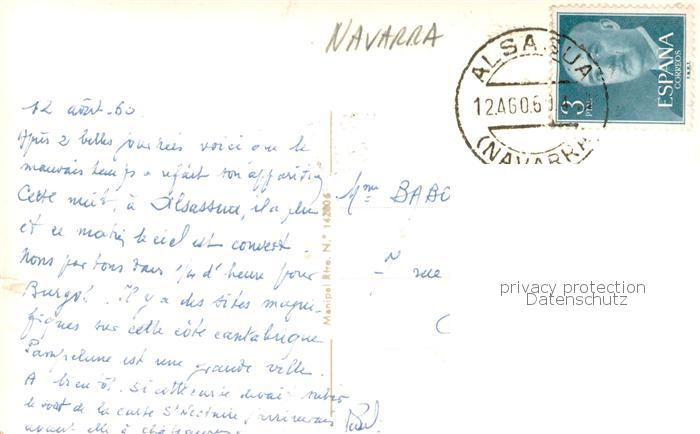 NAVARRA
ALSASUA
12.AGO.6
(NAVARRA
3
PTAS
ESPAÑA
CORREOS
12 août 60
Après 2 belles journées voici que le
mauvais temps a refait son apparition
Cette nuit, à Alsassua, il a plu
et ce matin le ciel est couvert.
Nous partons dans 1/4 d'heure pour
Burgos. Il y a des sites magni-
fiques sur cette côte cantabrique
Pampelune est une grande ville.
A bientôt. Si cette carte devait subir
le sort de la carte St Nectaire j'arriverais
avant elle à
Manipel Rto. N.º 142806
Mme BABO
rue
privacy protection
Datenschutz